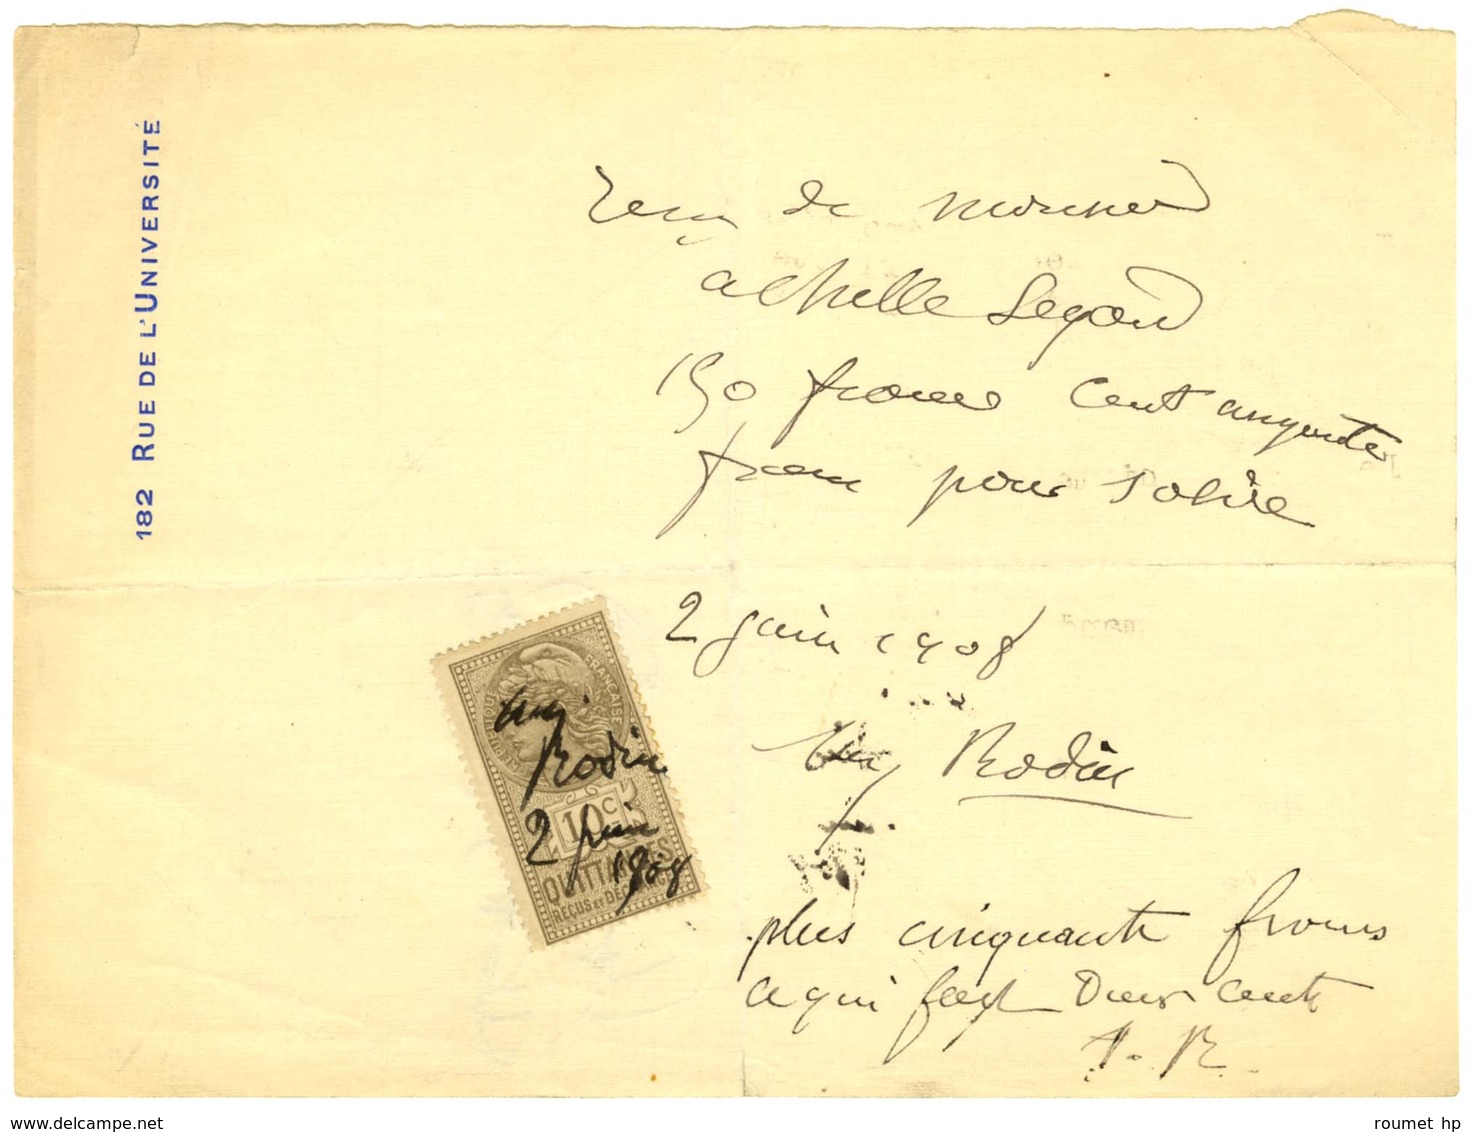 182 RUE DE L'UNIVERSITÉ
reçu de monsieur
achille Segard
150 francs cent cinquante
francs pour solde
2 juin 1908
Aug Rodin
RÉPUBLIQUE FRANÇAISE
10c
QUITTANCES
REÇUS ET DÉCHARGES
Aug.
Rodin
2 juin
1908
plus cinquante francs
ce qui fait Deux cents
A. R.
delcampe.net
roumet hp